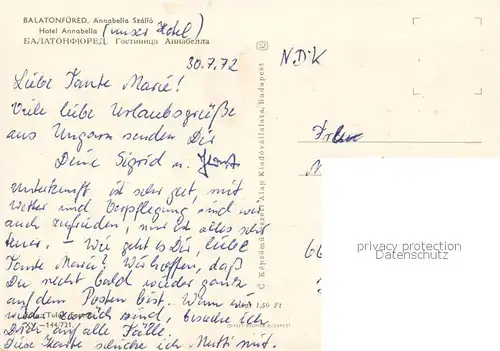 BALATONFÜRED. Annabella Szálló
Hotel Annabella (unser Hotel)
БАЛАТОНФЮРЕД. Гостиница Аннабелла
30.7.72
NDK
Liebe Tante Marie!
Viele liebe Urlaubsgrüße
aus Ungarn senden Dir
Deine Sigrid u. Horst
Unterkunft ist sehr gut, mit
Wetter und Verpflegung sind wir
auch zufrieden, nur ist alles sehr
teuer. – Wie geht es Dir, liebe
Tante Marie? Wir hoffen, daß
Du recht bald wieder ganz
auf dem Posten bist. Wenn wir
wieder zurück sind, besuche ich
Dich auf alle Fälle.
Diese Karte schicke ich Mutti mit.
C Képzőművészeti Alap Kiadóvállalata, Budapest
Frau
N
66
privacy protection
Datenschutz
1,50 Ft
144/721
BUDAPEST